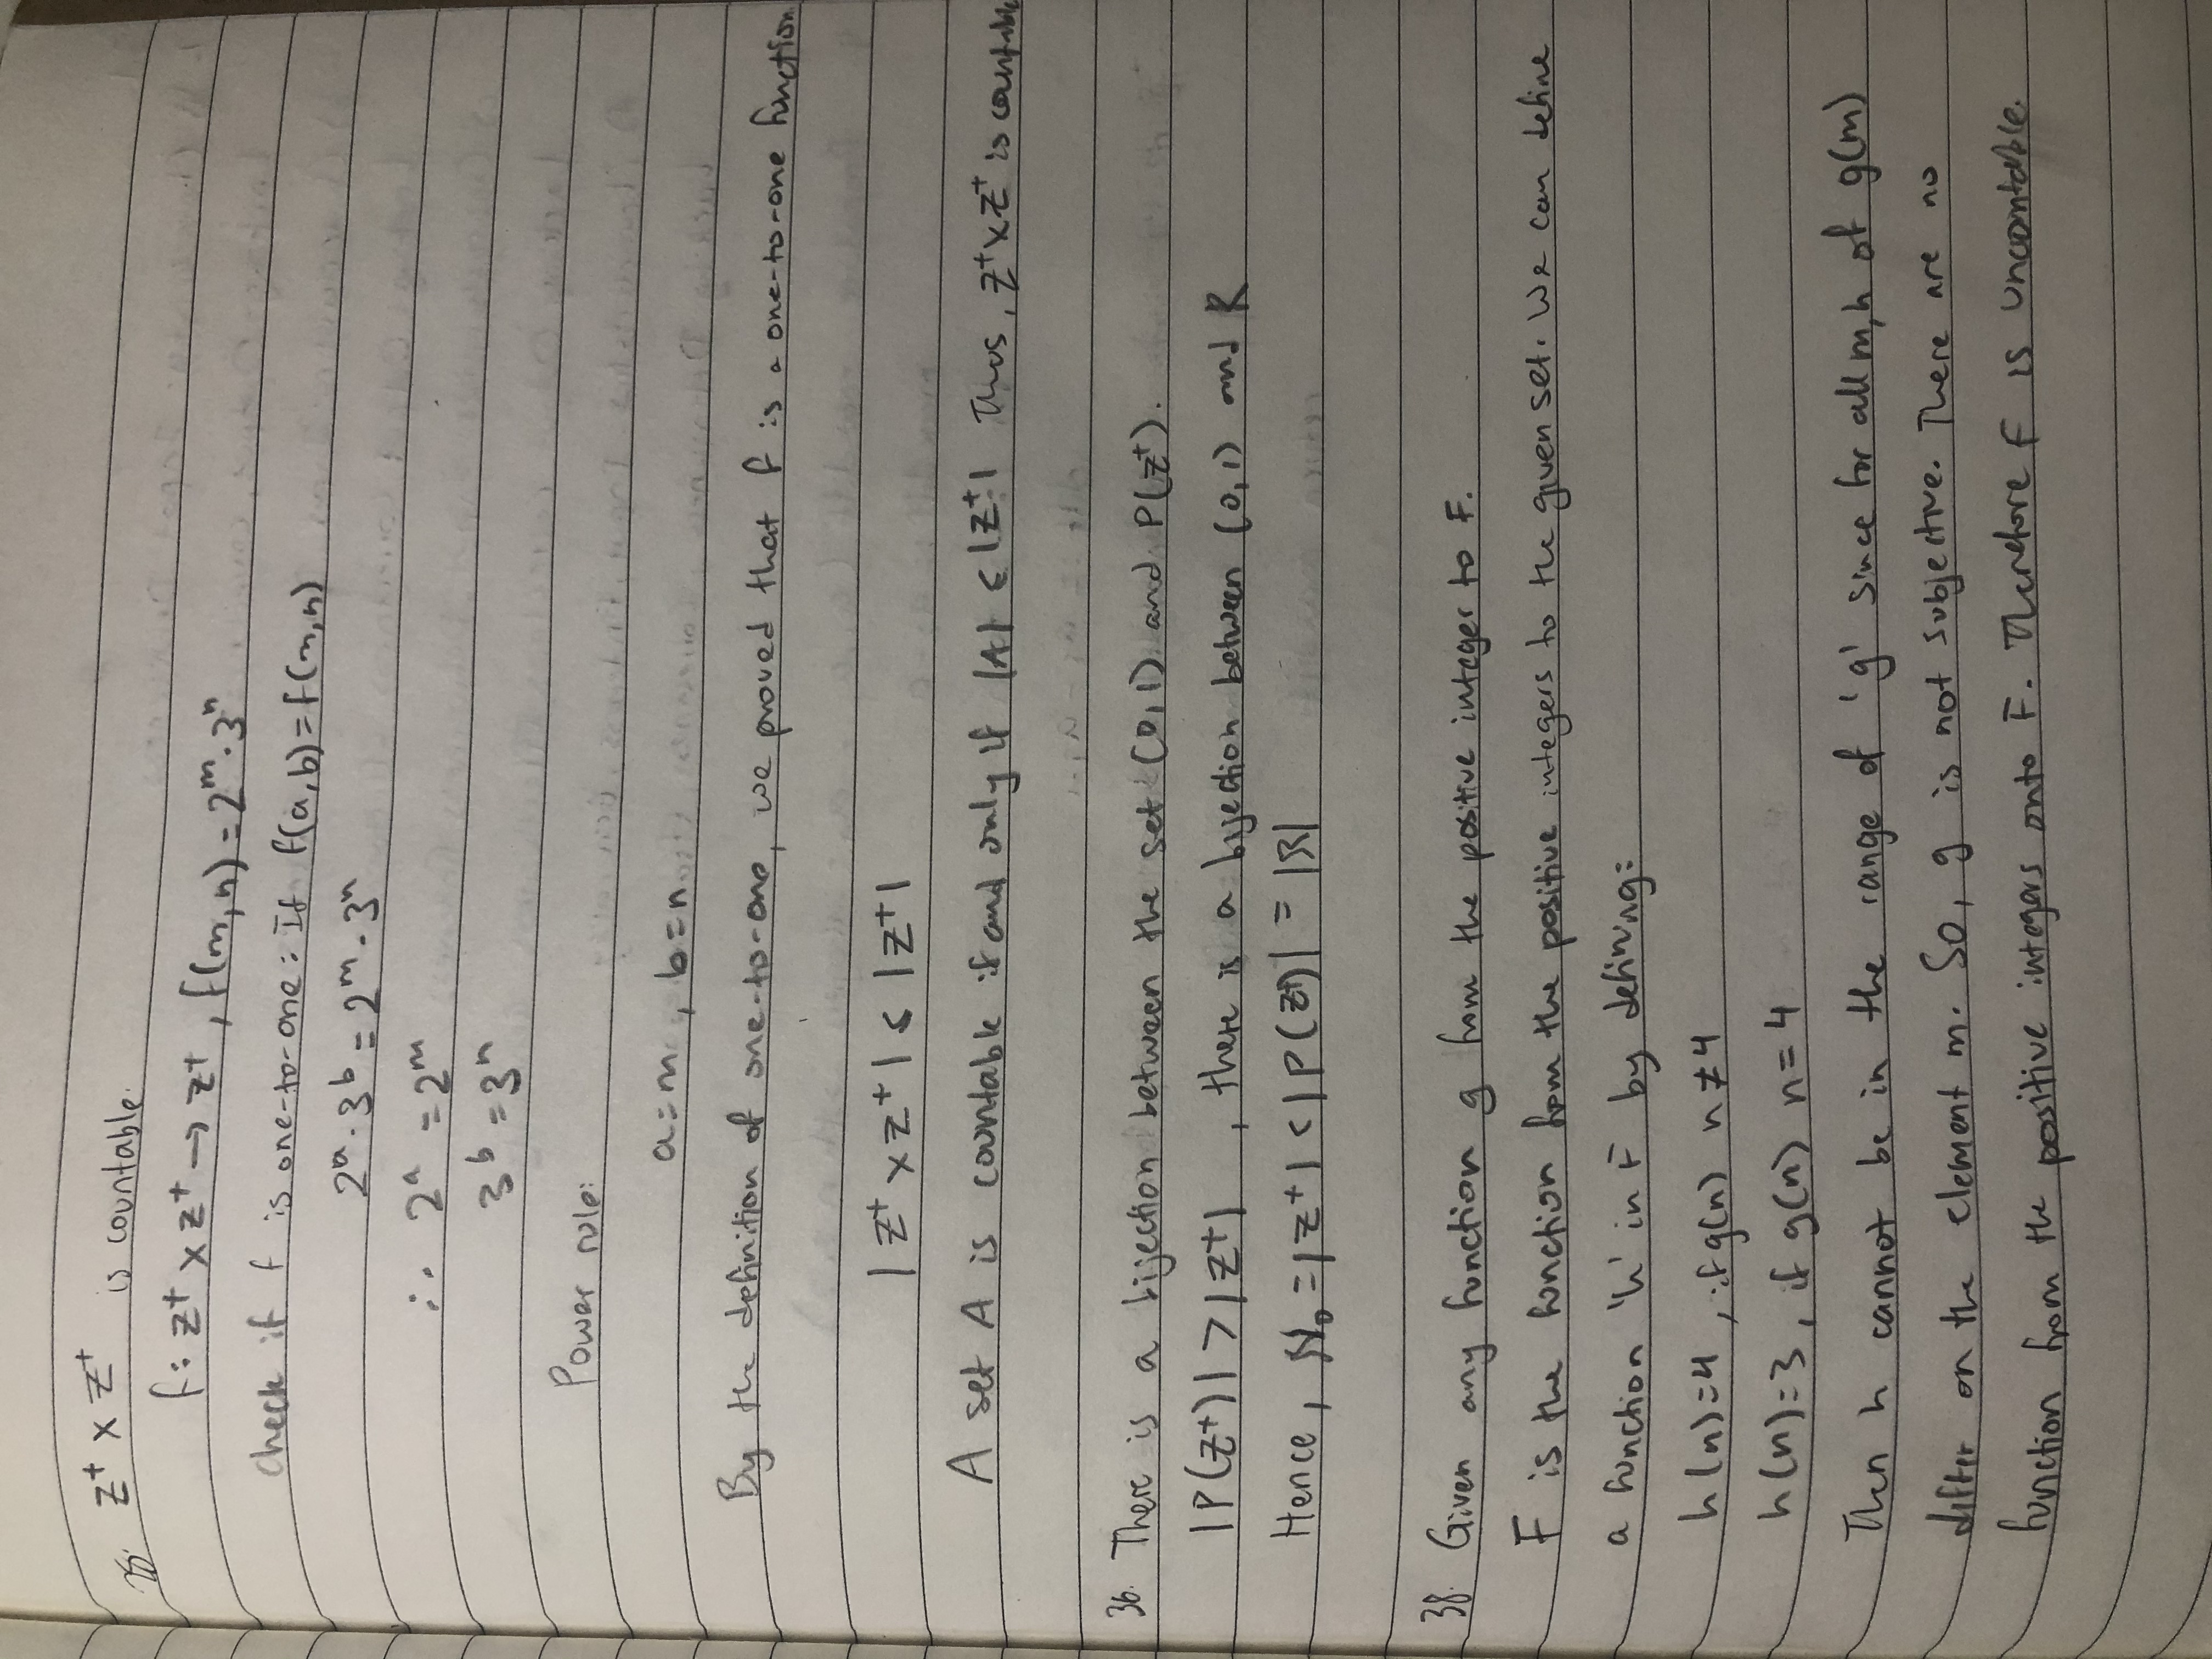 28. Z⁺ × Z⁺ is countable.
f: Z⁺ × Z⁺ → Z⁺, f(m,n) = 2ᵐ · 3ⁿ
Check if f is one-to-one: If f(a,b) = f(m,n)
2ᵃ · 3ᵇ = 2ᵐ · 3ⁿ
∴ 2ᵃ = 2ᵐ
3ᵇ = 3ⁿ
Power rule:
a = m, b = n
By the definition of one-to-one, we proved that f is a one-to-one function
|Z⁺ × Z⁺| ≤ |Z⁺|
A set A is countable if and only if |A| ≤ |Z⁺| Thus, Z⁺ × Z⁺ is countable
36. There is a bijection between the set (0,1) and P(Z⁺).
|P(Z⁺)| > |Z⁺| , there is a bijection between (0,1) and R
Hence, ℵ₀ = |Z⁺| < |P(Z⁺)| = |R|
38. Given any function g from the positive integer to F.
F is the function from the positive integers to the given set. We can define
a function 'h' in F by defining:
h(n)=4, if g(n) n ≠ 4
h(n)=3, if g(n) n = 4
Then h cannot be in the range of 'g' since for all m, h of g(m)
differ on the element m. So, g is not subjective. There are no
function from the positive integers onto F. Therefore F is uncountable.